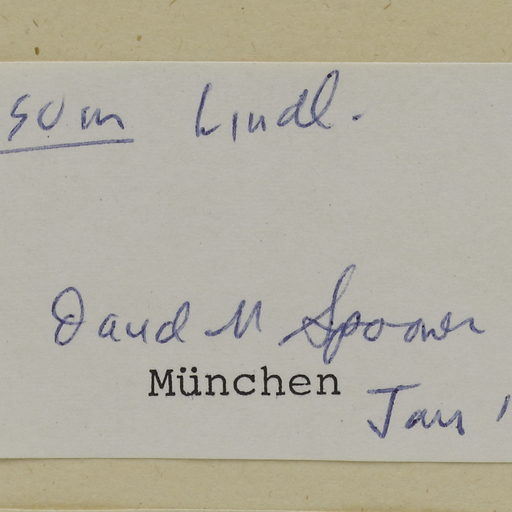 som Lindl.
David M Spooner
München
Jan '